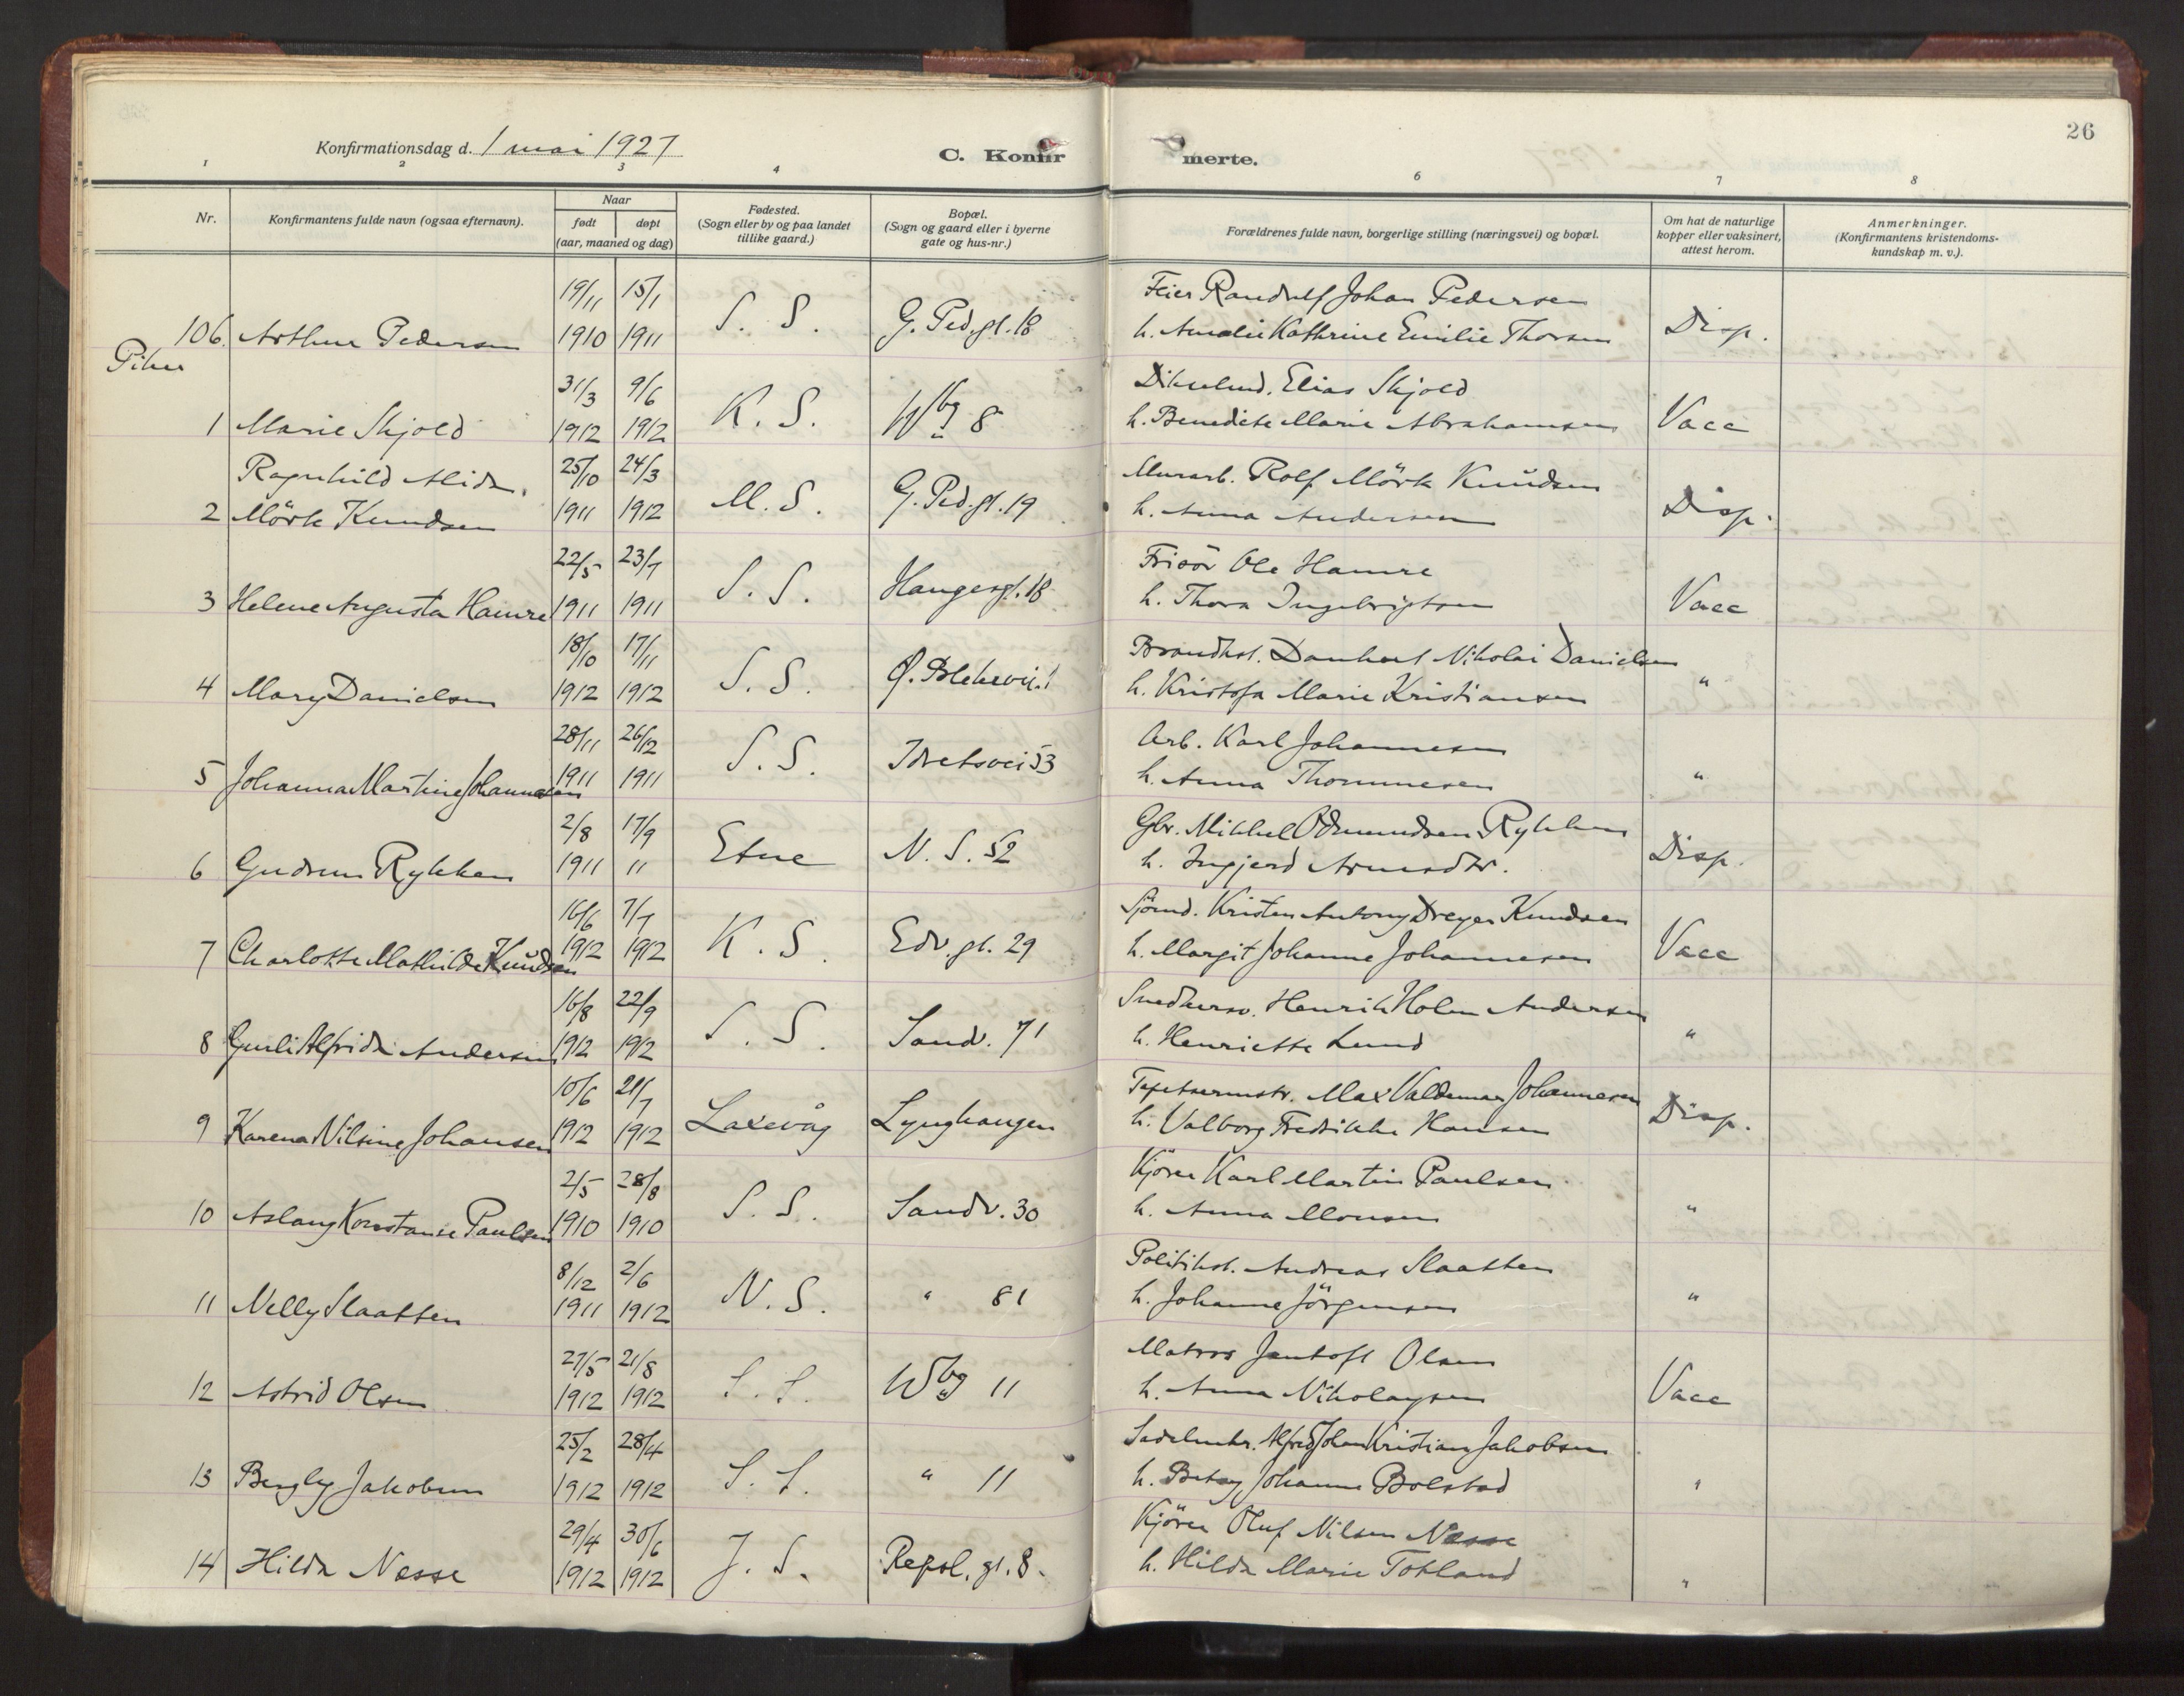 26
Konfirmationsdag d. 1 mai 1927
C. Konfir merte.
1 2 3 4 6 7 8
Nr.
Konfirmantens fulde navn (ogsaa efternavn).
Naar
født døpt
(aar, maaned og dag)
Fødested.
(Sogn eller by og paa landet
tillike gaard.)
Bopæl.
(Sogn og gaard eller i byerne
gate og hus-nr.)
Forældrenes fulde navn, borgerlige stilling (næringsvei) og bopæl.
Om hat de naturlige
kopper eller vaksinert,
attest herom.
Anmerkninger.
(Konfirmantens kristendoms-
kundskap m. v.).
19/11 15/1 Feier Randulf Johan Pedersen
106. Arthur Pedersen 1910 1911 S. S. G. Ped.gt. 18 h. Amalie Kathrine Emilie Thorsen Disp.
Piker
31/3 9/6 Elias Skjold
1 Marie Skjold 1912 1912 K. S. Wbg 8 h. Benedicte Marie Abrahamsen Vacc
Ragnhild Alida 25/10 24/3 Murarb. Rolf Mörk Knudsen
2 Mörk Knudsen 1911 1912 M. S. G. Ped.gt. 19 h. Anna Andersen Disp.
22/5 23/7 Frisör Ole Hamre
3 Helene Augusta Hamre 1911 1911 S. S. Haugesgt. 18 h. Thora Ingebrigtsen Vacc
18/10 17/11 Brandkst. Dankert Nikolai Danielsen
4 Mary Danielsen 1912 1912 S. S. Ø. Blekevei. 1 h. Kristofa Marie Kristiansen "
28/11 26/12 Arb. Karl Johannesen
5 Johanna Martine Johannesen 1911 1911 S. S. Idretsvei 53 h. Anna Thommesen "
2/8 17/9 Gbr. Mikkel Odmundsen Rykken
6 Gudrun Rykken 1911 11 Etne N. S. 52 h. Ingjerd Disp.
16/6 7/7 Sjömd. Kristen Antony Dreyer Knudsen
7 Charlotte Mathilde Knudsen 1912 1912 K. S. Edv. gt. 29 h. Margit Johanne Johannesen Vacc
16/8 22/9 Snedkersv. Henrik Holm Andersen
8 Gunli Alfrida Andersen 1912 1912 S. S. Sandv. 71 h. Henriette Lund "
10/6 21/7 Tapetsermstr. Max Valdemar Johannesen
9 Karena Nilsine Johansen 1912 1912 Laxevåg Lynghaugen h. Valborg Fredrikke Hansen Disp.
2/5 28/8 Kjörer Karl Martin Paulsen
10 Aslaug Konstanse Paulsen 1910 1910 S. S. Sandv. 30 h. Anna Monsen "
8/12 2/6 Politikst. Andreas Slaatten
11 Nelly Slaatten 1911 1912 N. S. " 81 h. Johanne Jörgensen "
27/5 21/8 Matros Jentoft Olsen
12 Astrid Olsen 1912 1912 S. S. Wbg 11 h. Anna Nikolaysen Vacc
25/2 28/4 Sadelmkr. Alfred Johan Kristian Jakobsen
13 Bergly Jakobsen 1912 1912 S. S. " 11 h. Betsy Johanne Bolstad "
29/4 30/6 Kjörer Oluf Nilsen Nesse
14 Hilda Nesse 1912 1912 J. S. Repsl. gt. 8. h. Hilda Marie Totland "